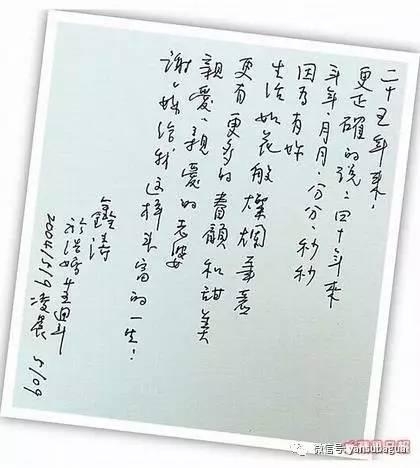 二十五年來，
更正確的說：四十年來
年年、月月、分分、秒秒
因為有妳
生活如花般燦爛
更有更多的眷顧和甜美
親愛、親愛的老婆
謝謝妳給我這樣豐富的一生！
鑫濤
於結婚廿五週年
2004/5/9凌晨 5/09
微信号: yansubagua